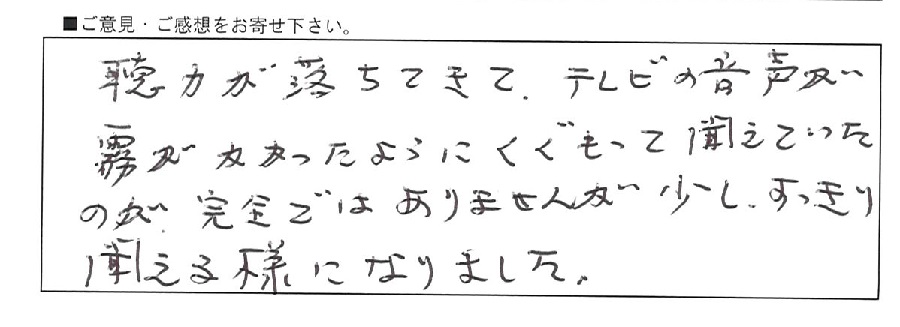 ■ご意見・ご感想をお寄せ下さい。
聴力が落ちてきて、テレビの音声が
霧がかかったようにくぐもって聞えていた
のが、完全ではありませんが少し、すっきり
聞える様になりました。